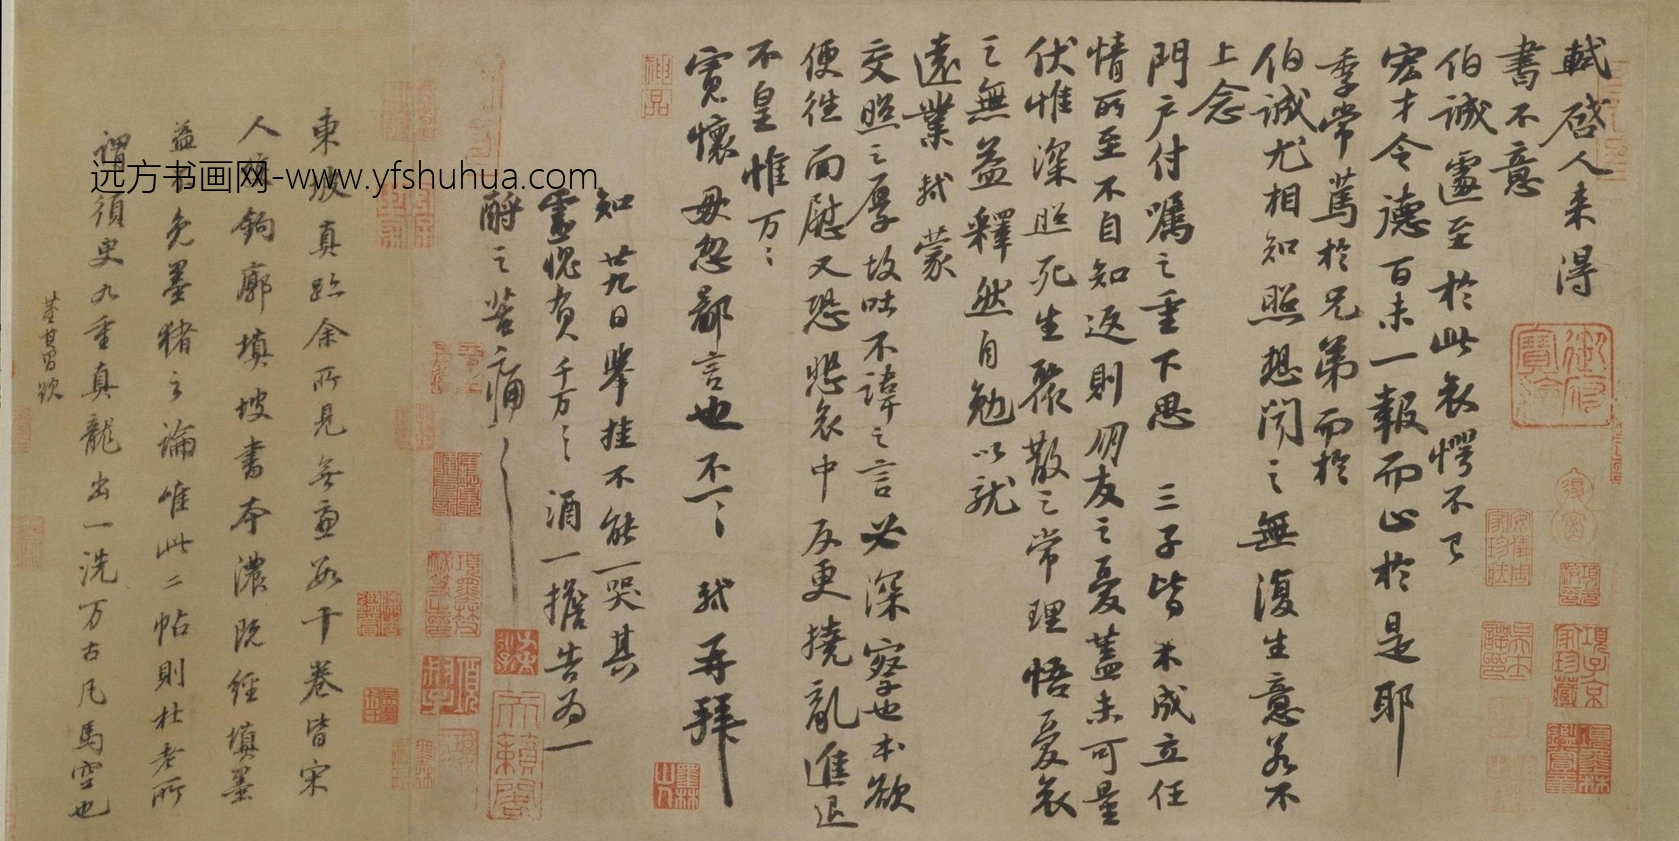 軾啓人來得
書不意
伯誠遽至於此哀愕不已
宏才令德百未一報而止於是耶
季常篤於兄弟而於
伯誠尤相知照想聞之無復生意若不
上念
門户付囑之重下思三子皆未成立任
情所至不自知返則朋友之憂蓋未可量
伏惟深照死生聚散之常理悟憂哀
之無益釋然自勉以就
遠業軾蒙
交照之厚故吐不諱之言必深察也本欲
便往面慰又恐悲哀中反更撓亂進退
不皇惟万々
寬懷毋忽鄙言也不一々軾再拜
知廿九日舉挂不能一哭其
靈愧負千万々酒一擔告為一
酹之苦痛々
東坡真跡余所見無慮數十卷皆宋
人雙鉤廓填坡書本濃既經填墨
益不免墨豬之論惟此二帖則杜老所
謂須臾九重真龍出一洗万古凡馬空也
董其昌題
远方书画网-www.yfshuhua.com
神品
御府寶繪
天籟閣